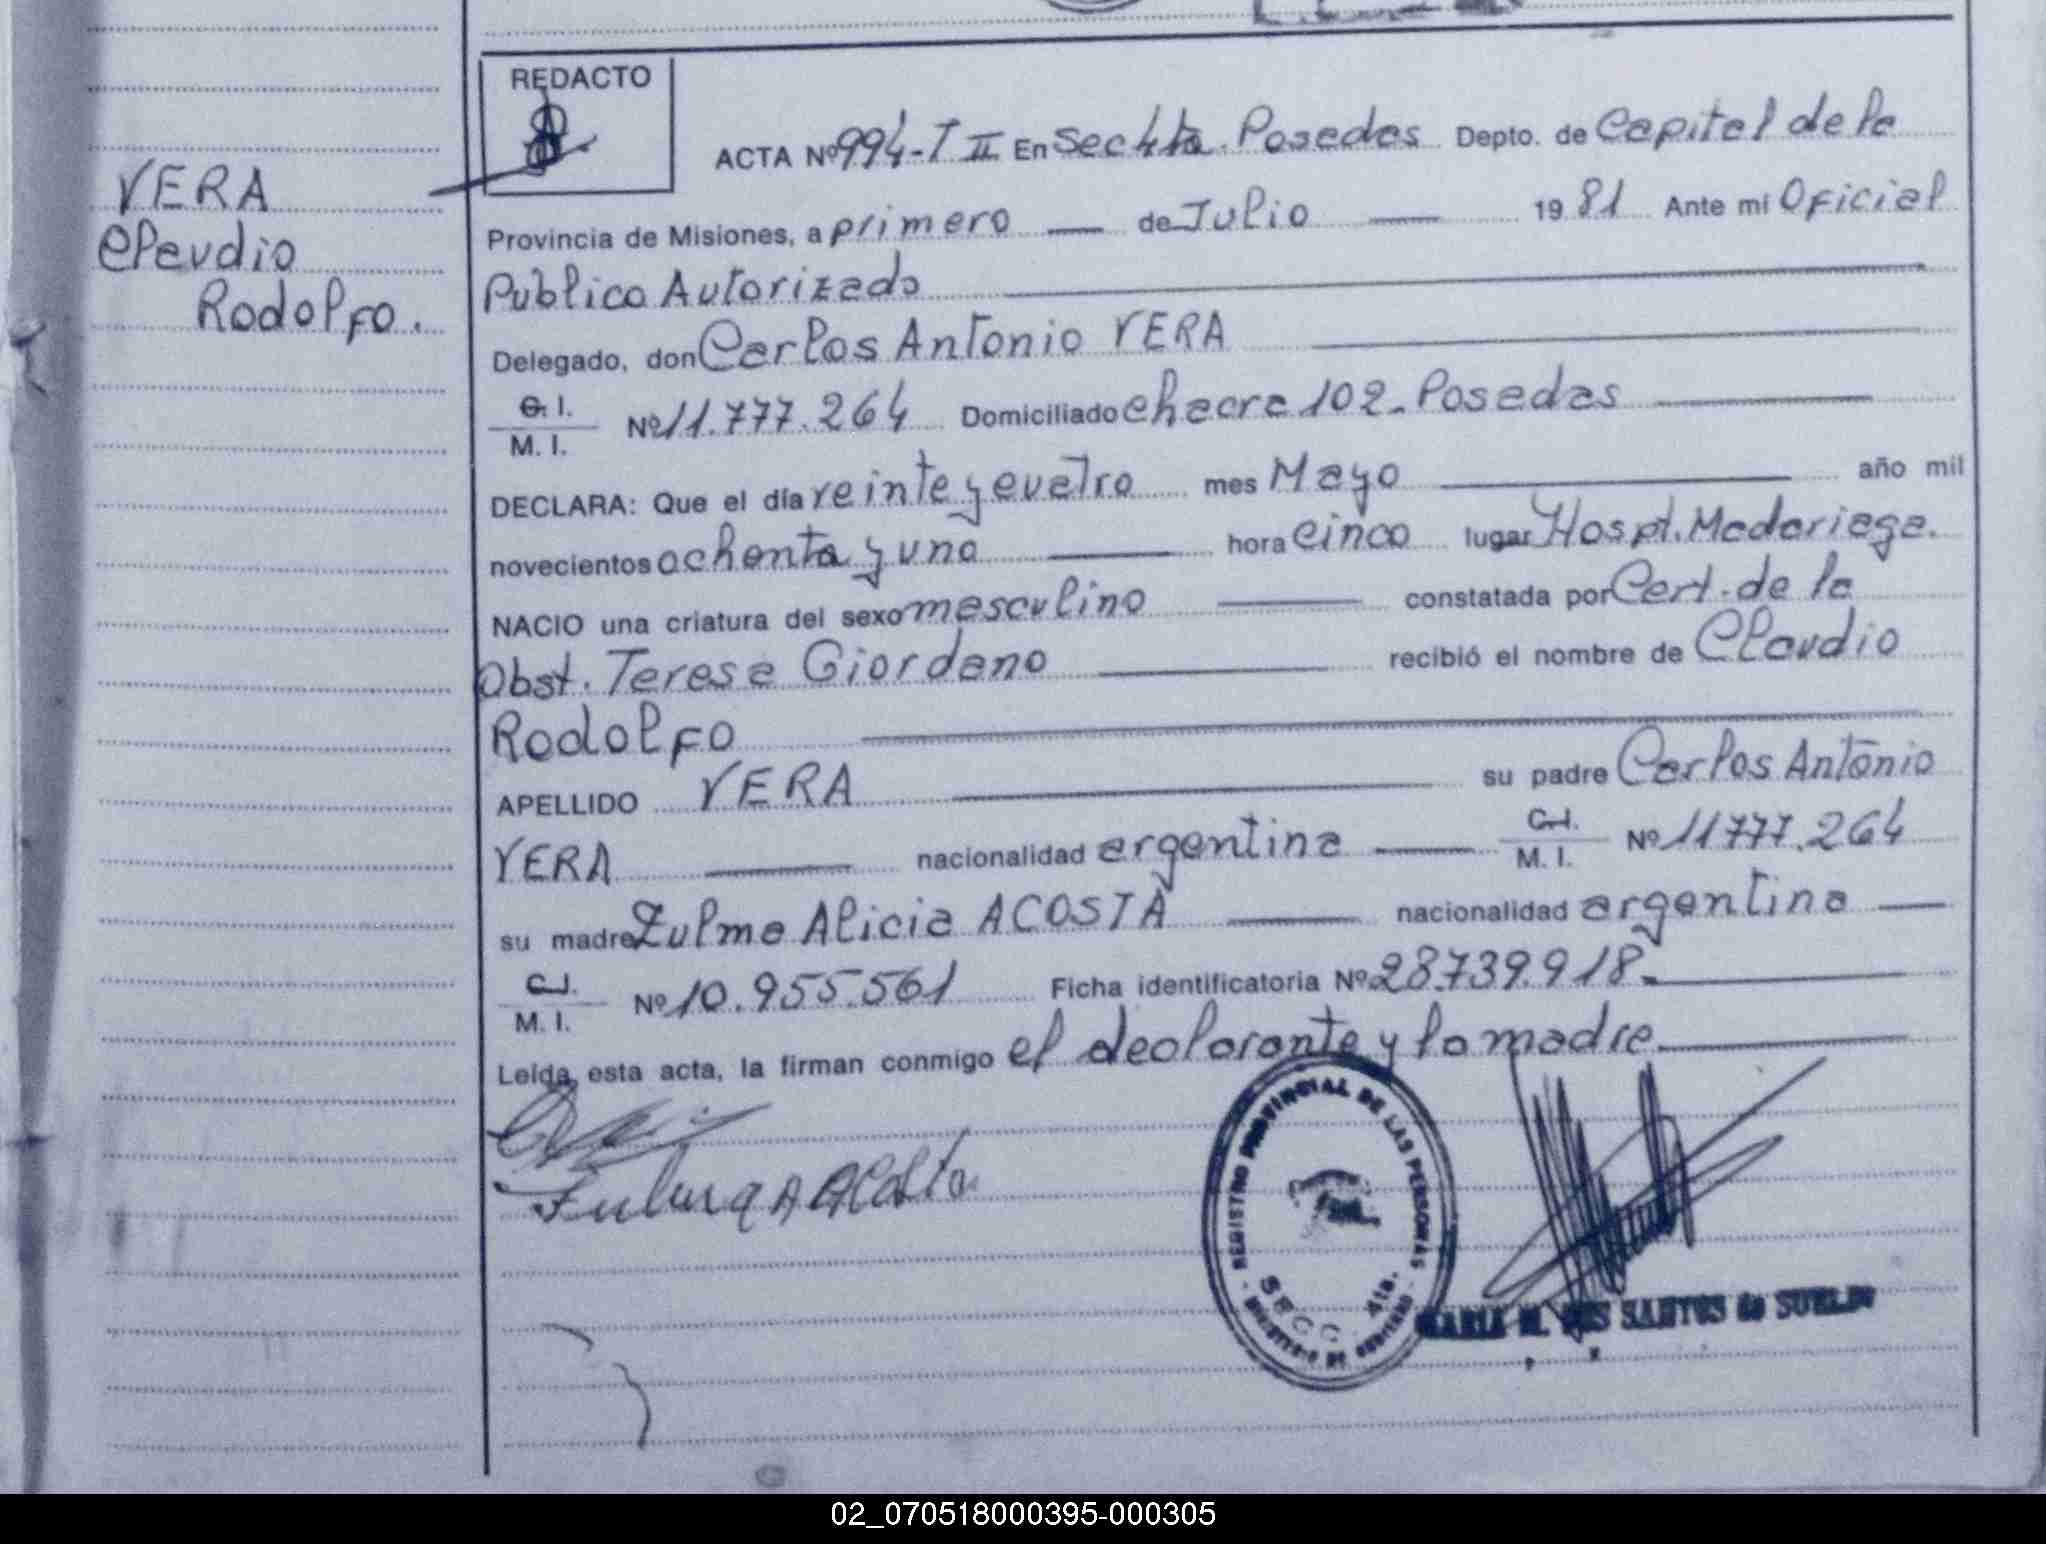 REDACTO
ACTA Nº 994-T II En Secc 4ta. Posadas Depto. de Capital de la
VERA
Claudio
Rodolfo.
Provincia de Misiones, a primero de Julio 19 81 Ante mi Oficial
Publico Autorizado
Delegado, don Carlos Antonio VERA
C. I.
M. I. Nº 11.777.264 Domiciliado chacra 102. Posadas
DECLARA: Que el día veinte y cuatro mes Mayo año mil
novecientos ochenta y uno hora cinco lugar Hospt. Madariaga.
NACIO una criatura del sexo masculino constatada por Cert. de la
Obst. Teresa Giordano recibió el nombre de Claudio
Rodolfo
APELLIDO VERA su padre Carlos Antonio
VERA nacionalidad argentina C.I. M. I. Nº 11777.264
su madre Zulma Alicia ACOSTA nacionalidad argentina
C.I.
M. I. Nº 10.955.561 Ficha identificatoria Nº 28.739.918.
Leída esta acta, la firman conmigo el declarante y la madre
Zulma A Acosta
REGISTRO PROVINCIAL DE LAS PERSONAS
SECC. 4ta.
MARIA M. DOS SANTOS de
02_070518000395-000305